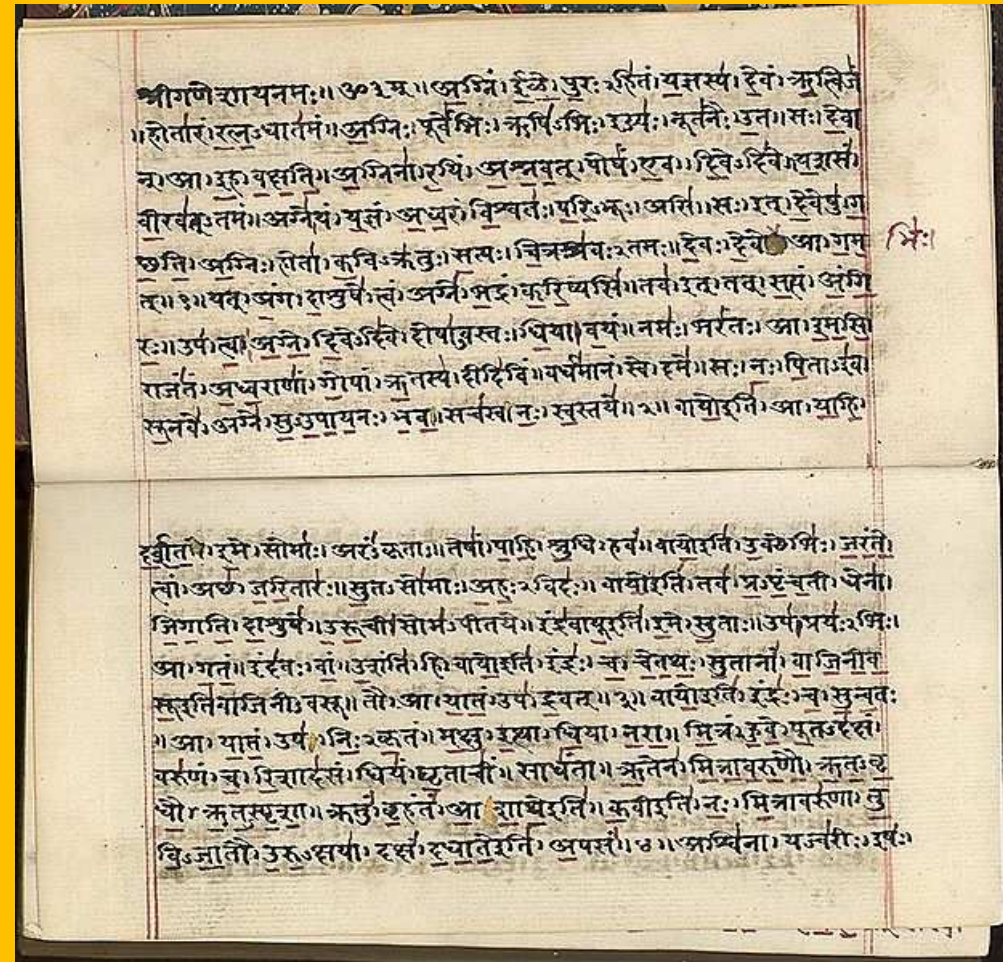 श्रीगणेशायनमः॥ॐ३म्॥अग्निं।ईळे।पुरःऽहितं।यज्ञस्य।देवं।ऋत्विजं
॥होतारं।रत्नऽधातमं॥अग्निः।पूर्वेभिः।ऋषिऽभिः।ईड्यः।नूतनैः।उत॥सः।देवा
न्।आ।इह।वक्षति॥अग्निना।रयिं।अश्नवत्।पोषं।एव।दिवेऽदिवे॥यशसं।
वीरवत्ऽतमं॥अग्नेयं।यज्ञं।अध्वरं।विश्वतः।परिऽभूः।असि॥सः।इत्।देवेषु।ग
छति।अग्निः।होता।कविऽक्रतुः।सत्यः।चित्रश्रवःऽतमः॥देवः।देवे।आ।गम
भिः।
त्॥१॥यत्।अंग।दाशुषे।त्वं।अग्ने।भद्रं।करिष्यसि॥तव।इत्।तत्।सत्यं।अंगि
रः॥उप।त्वा।अग्ने।दिवेऽदिवे।दोषाऽवस्तः।धिया।वयं॥नमः।भरंतः।आ।इमसि
राजंतं।अध्वराणां।गोपां।ऋतस्य।दीदिविं॥वर्धमानं।स्वे।दमे॥सः।नः।पिताऽइव।
सूनवे।अग्ने।सुऽउपायनः।भव॥सचस्व।नः।स्वस्तये॥२॥वायोइति।आ।याहि।
दर्शत।इमे।सोमाः।अरंऽकृताः॥तेषां।पाहि।श्रुधि।हवं॥वायोइति।उक्थेभिः।जरंते।
त्वां।अछ।जरितारः॥सुतऽसोमाः।अहःऽविदः॥वायोइति।तव।प्रऽपृंचती।धेना।
जिगाति।दाशुषे॥उरूची।सोमऽपीतये॥इंद्रवायूइति।इमे।सुताः॥उप।प्रयःऽभिः।
आ।गतं॥इंदवः।वां॥उशंति।हि।वायोइति।इंद्रः।च।चेतथः।सुतानां।वाजिनीव
सूइतिवाजिनीऽवसू॥तौ।आ।यातं।उप।द्रवत्॥३॥वायोइति।इंद्रः।च।सुन्वतः
॥आ।यातं।उप।निःऽकृतं॥मक्षु।इत्था।धिया।नरा॥मित्रं।हुवे।पूतऽदक्षं।
वरुणं।च।रिशादसं।धियं।घृताचीं॥साधंता॥ऋतेन।मित्रावरुणौ।ऋतऽवृ
धौ।ऋतऽस्पृशा॥क्रतुं।बृहंतं।आशाथेइति॥कवीइति।नः।मित्रावरुणा।तु
विऽजातौ।उरुऽक्षया।दक्षं।दधातेइति।अपसं॥४॥अश्विना।यज्वरीः।इषः।